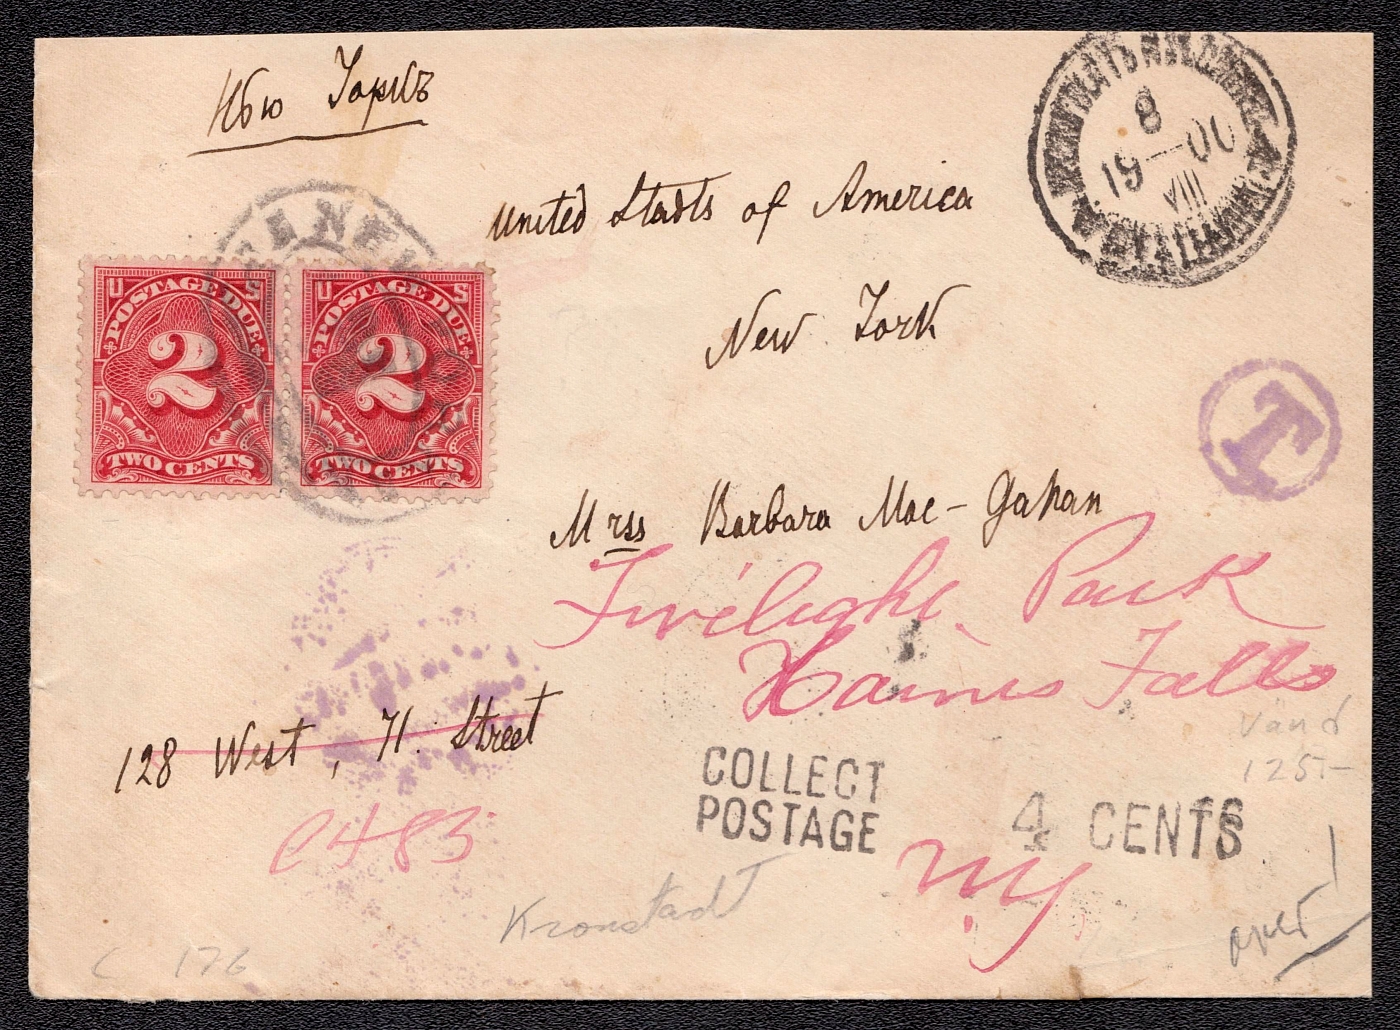 Нью Іоркъ
8
19-00
VIII
United Stadts of America
U S
POSTAGE DUE
2
TWO CENTS
U S
POSTAGE DUE
2
TWO CENTS
New York
T
Mrss Barbara Mac-Gahan
Twilight Park
Haines Falls
128 West, 71. Street
COLLECT
POSTAGE
4 CENTS
C483
N.Y.
Kronstadt
C 176